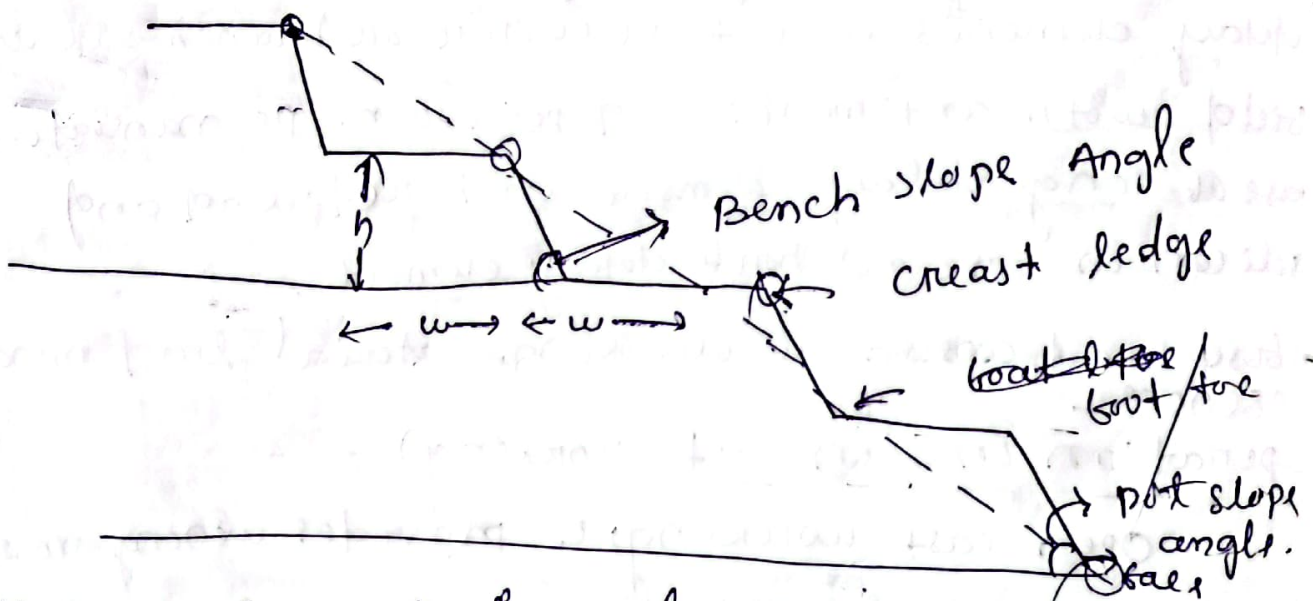 Bench slope Angle
h
creast ledge
w w
foot toe
pit slope
angle.